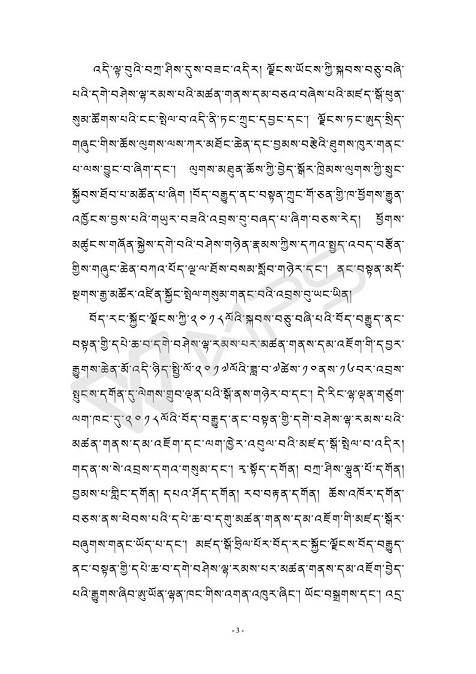 འདི་ལྟ་བུའི་བཀྲ་ཤིས་དུས་བཟང་འདིར། ལྗོངས་ཡོངས་ཀྱི་སྐབས་བཅུ་བཞི་
པའི་དགེ་བཤེས་ལྷ་རམས་པའི་མཚན་གནས་དམ་བཅའ་བཞེས་པའི་མཛད་སྒོ་ཕུན་
སུམ་ཚོགས་པའི་ངང་སྤེལ་བ་འདི་ནི་ཏང་ཀྲུང་དབྱང་དང་། ལྗོངས་ཏང་ཨུད་སྲིད་
གཞུང་གིས་ཆོས་ལུགས་ལས་ཀར་མཐོང་ཆེན་དང་བྱམས་བརྩེའི་ཐུགས་ཁུར་གནང་
པ་ལས་བྱུང་བ་ཞིག་དང་། ལུགས་མཐུན་ཆོས་ཀྱི་བྱེད་སྒོར་ཁྲིམས་ལུགས་ཀྱི་སྲུང་
སྐྱོབས་ཐོབ་པ་མཚོན་པ་ཞིག །བོད་བརྒྱུད་ནང་བསྟན་ཀྲུང་གོ་ཅན་གྱི་ཁ་ཕྱོགས་རྒྱུན་
འཁྱོངས་བྱས་པའི་གཡུར་བཟའི་འབྲས་བུ་བཞད་པ་ཞིག་བཅས་རེད། ཕྱོགས་
མཚུངས་གཞོན་སྐྱེས་དགེ་བའི་བཤེས་གཉེན་རྣམས་ཀྱིས་དཀའ་སྤྱད་འབད་བརྩོན་
གྱིས་གཞུང་ཆེན་བཀའ་པོད་ལྔ་ལ་ཐོས་བསམ་སློབ་གཉེར་དང་། ནང་བསྟན་མདོ་
སྔགས་རྒྱ་མཚོར་འཛིན་སྐྱོང་སྤེལ་གསུམ་གནང་བའི་འབྲས་བུ་ཡང་ཡིན།
བོད་རང་སྐྱོང་ལྗོངས་ཀྱི་༢༠༡༨ལོའི་སྐབས་བཅུ་བཞི་པའི་བོད་བརྒྱུད་ནང་
བསྟན་གྱི་དཔེ་ཆ་བ་དགེ་བཤེས་ལྷ་རམས་པར་མཚན་གནས་དམ་འཇོག་གི་དབྱར་
རྒྱུགས་ཆེན་མོ་འདི་ཉིད་སྤྱི་ལོ་༢༠༡༧ལོའི་ཟླ་བ་༧ཚེས་༡༠ནས་༡༥བར་འབྲས་
སྤུངས་དགོན་དུ་ལེགས་གྲུབ་ལྡན་པའི་སྒོ་ནས་གཉེར་བ་དང་། དེ་རིང་ལྷ་ལྡན་གཙུག་
ལག་ཁང་དུ་༢༠༡༨ལོའི་བོད་བརྒྱུད་ནང་བསྟན་གྱི་དགེ་བཤེས་ལྷ་རམས་པའི་
མཚན་གནས་དམ་འཇོག་དང་ལག་ཁྱེར་འབུལ་བའི་མཛད་སྒོ་སྤེལ་བ་འདིར།
གདན་ས་སེ་འབྲས་དགའ་གསུམ་དང་། རྭ་སྟོད་དགོན། བཀྲ་ཤིས་ལྷུན་པོ་དགོན།
བྱམས་པ་གླིང་དགོན། དཔའ་ཤོད་དགོན། རབ་བརྟན་དགོན། ཆོས་འཁོར་དགོན་
བཅས་ནས་ཕེབས་པའི་དཔེ་ཆ་བ་དགུ་མཚན་གནས་དམ་འཇོག་གི་མཛད་སྒོར་
བཞུགས་གནང་ཡོད་པ་དང་། མཛད་སྒོ་ཧྲིལ་པོར་བོད་རང་སྐྱོང་ལྗོངས་བོད་བརྒྱུད་
ནང་བསྟན་གྱི་དཔེ་ཆ་བ་དགེ་བཤེས་ལྷ་རམས་པར་མཚན་གནས་དམ་འཇོག་བྱེད་
པའི་རྒྱུགས་ཞིབ་ཨུ་ཡོན་ལྷན་ཁང་གིས་འགན་འཁུར་ཞིང་། ཡོང་བསྒྲགས་དང་། འདྲ་
- 3 -